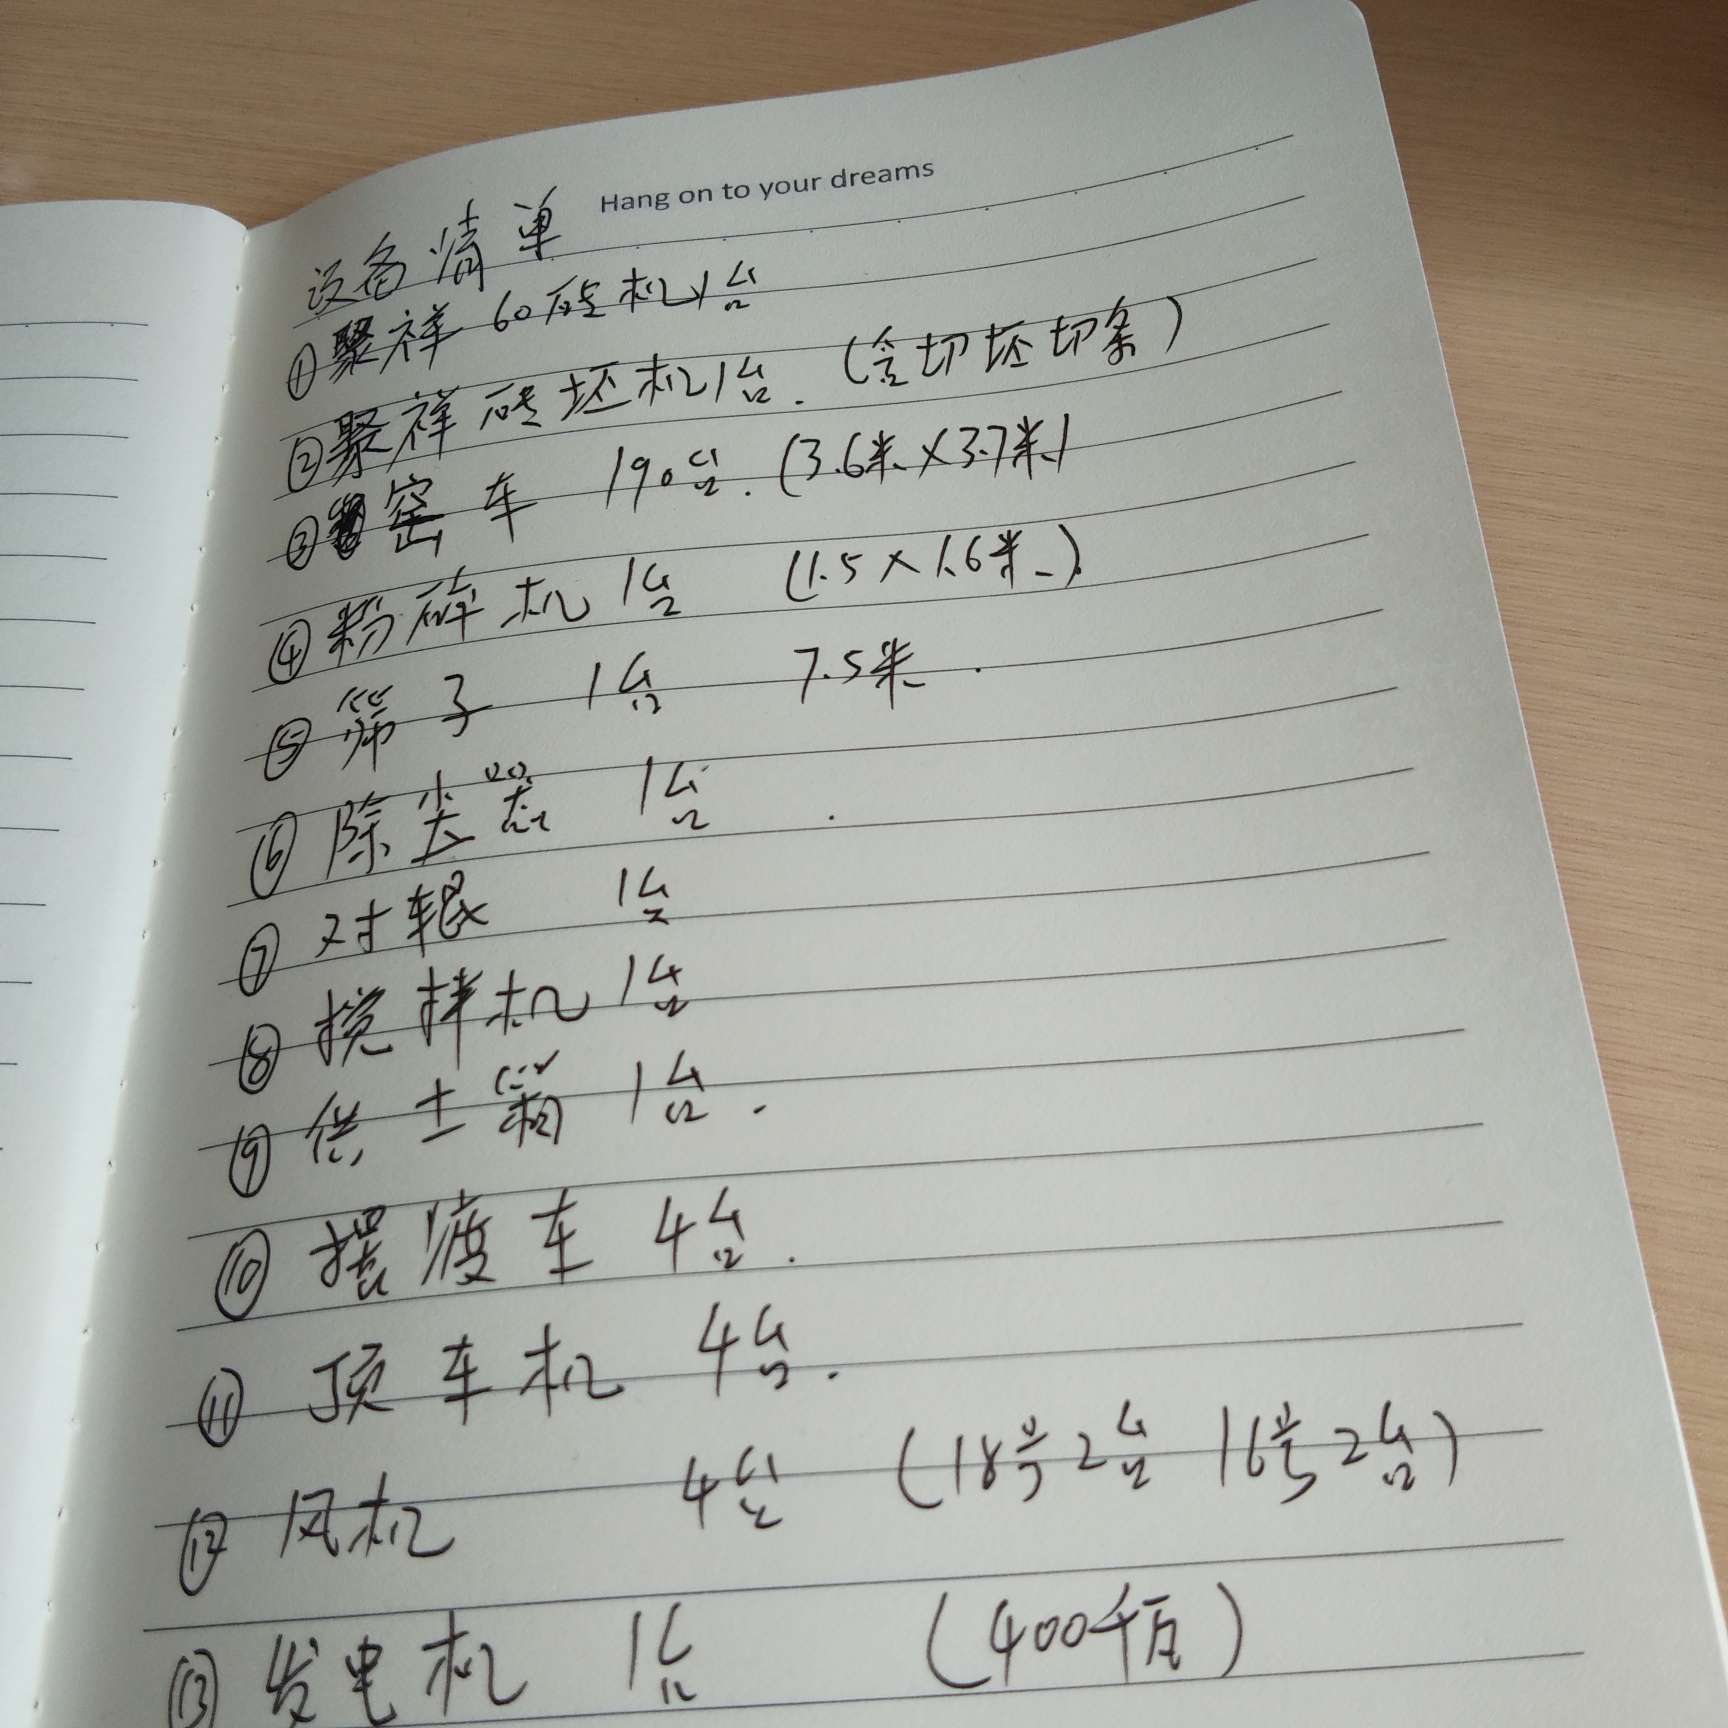 Hang on to your dreams
设备清单
①聚祥60砖机1台
②聚祥砖坯机1台.(含切坯切条)
③窑车 190台.(3.6米×3.7米)
④粉碎机1台 (1.5×1.6米)
⑤筛子 1台 7.5米.
⑥除尘器 1台.
⑦对辊 1台
⑧搅拌机1台
⑨供土箱1台.
⑩摆渡车 4台.
⑪顶车机 4台.
⑫风机 4台 (18号2台 16号2台)
⑬发电机 1台 (400千瓦)